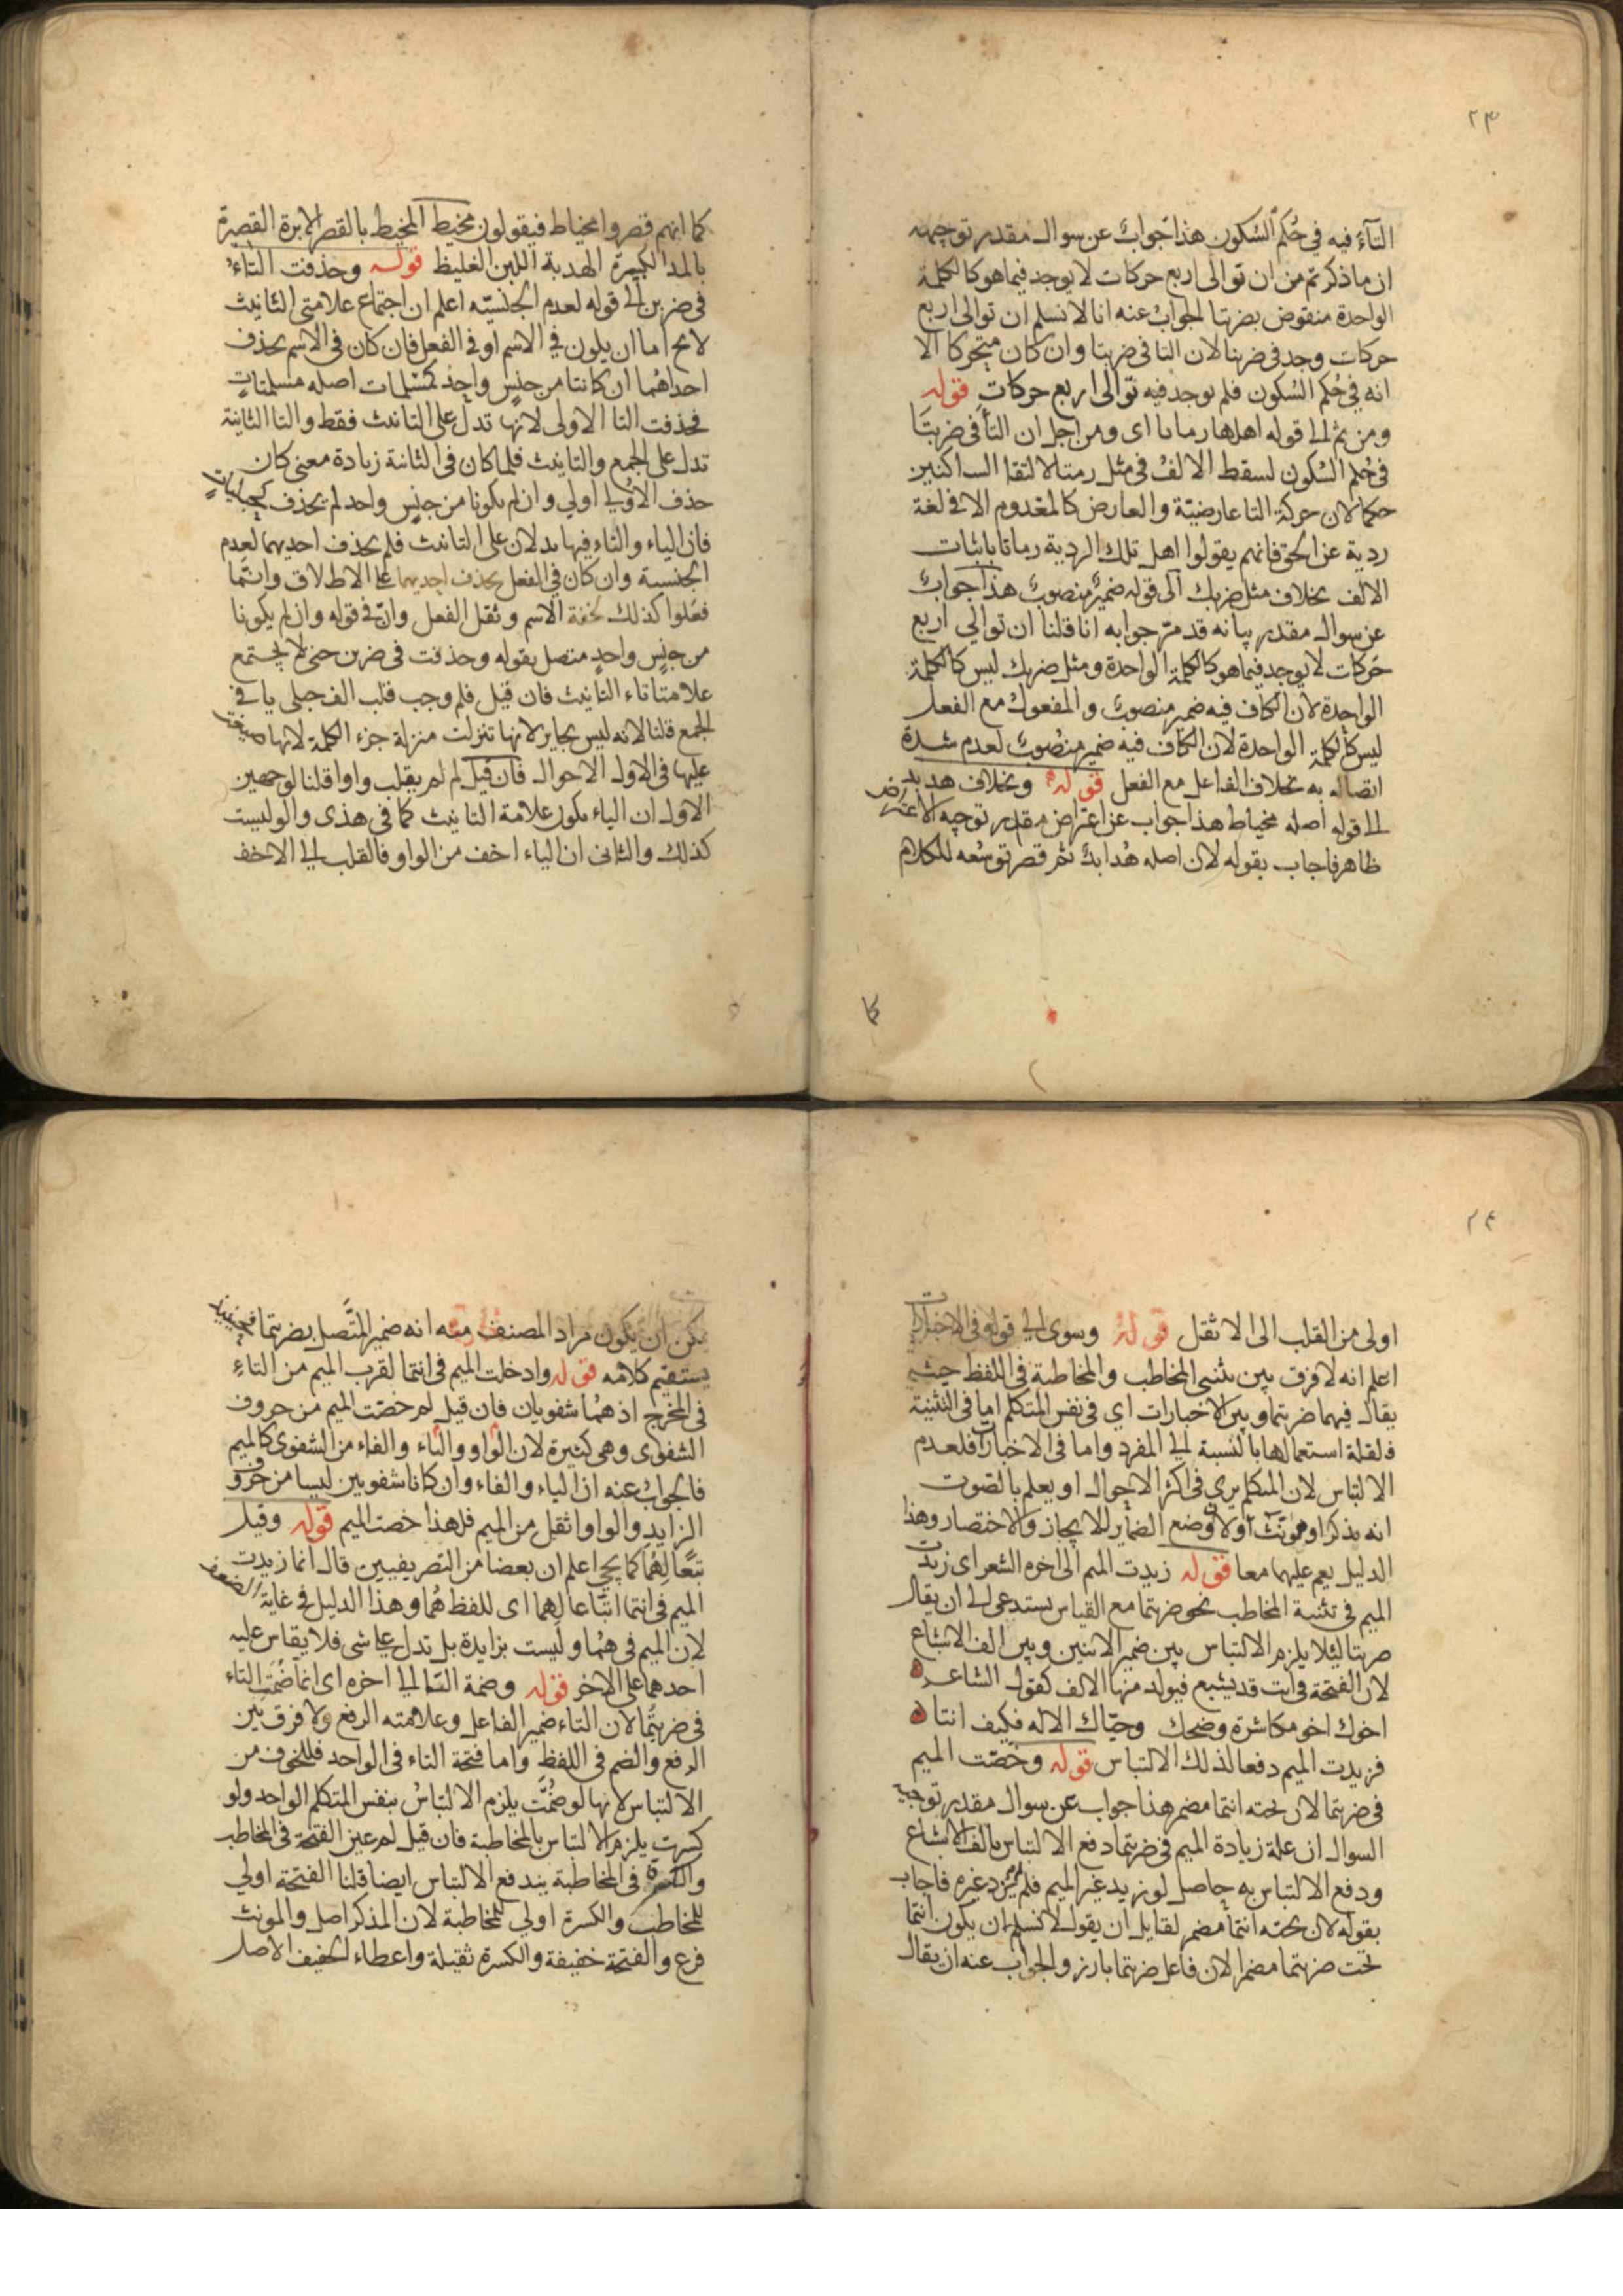 ٢٣
التآء فيه في حُكم السّكون هذا جواب عن سوال مقدر توجيهه
ان ما ذكرتم من ان توالى اربع حركات لا يوجد فيما هو كالكلمة
الواحدة منقوض بضربتا الجواب عنه انا لا نسلم ان توالى اربع
حركات وجد فى ضربتا لان التا فى ضربتا وان كان متحركا الا
انه في حُكم السّكون فلم يوجد فيه توالى اربع حركات قوله
ومن ثم الى قوله اهلها رماتا اى ومن اجل ان التآ فى ضربتَا
فى حُكم السّكون لسقط الالفُ فى مثل رمتا لالتقا الساكنين
حكما لان حركة التا عارضيّة والعارض كالمعدوم الا فى لغة
ردية عن الحق فانهم يقولوا اهل تلك الردية رماتا باثبات
الالف بخلاف مثل ضربك الى قوله ضميرٌ منصوبٌ هذا جوابٌ
عن سوال مقدر بيانه قد مرّ جوابه انا قلنا ان توالي اربع
حَركات لا يوجد فيما هو كالكلمة الواحدة ومثل ضربك ليس كالكلمة
الواحدة لان الكاف فيه ضمير منصوبٌ والمفعول مع الفعل
ليس كالكلمة الواحدة لان الكاف فيه ضمير منصُوبٌ لعدم شدة
اتصاله به بخلاف الفاعل مع الفعل قوله وبخلاف هدبد
الى قوله اصله مخياط هذا جواب عن اعتراض مقدر توجيه الاعتراض
ظاهر فاجاب بقوله لان اصله هُدابدٌ ثم قصر توسُعه للكلام
كما
كما انهم قصروا مخياط فيقولون مخيط المخيط بالقصر الابرة القصيرة
بالمد الكبيرة الهدبة اللبن الغليظ قوله وحذفت التاءُ
فى ضربن الى قوله لعدم الجنسيّه اعلم ان اجتماع علامتى التانيث
لا يخ اما ان يكون في الاسم او فى الفعل فان كان فى الاسم يحذف
احداهُما ان كانتا من جنسٍ واحدٍ كمسْلمات اصله مسلمتات
فحذفت التا الاولى لانها تدل على التانيث فقط والتا الثانية
تدل على الجمع والتانيث فلما كان فى الثانة زيادة معنى كان
حذف الاُولي اولي وان لم يكونا من جنس واحد لم يحذف كحبليات
فان الياء والتاء فيها يدلان على التانيث فلم يحذف احديهما لعدم
الجنسية وان كان في الفعل يحذف احديهما على الاطلاق وانّما
فعلوا كذلك لخفة الاسم وثقل الفعل وانّ فى قوله وان لم يكونا
من جنسٍ واحدٍ متصل بقوله وحذفت فى ضربن حتى لا يجتمع
علامتا تاء التانيث فان قيل فلم وجب قلب الف حبلى يا في
الجمع قلنا لانه ليس بجايز لانها تنزلت منزلة جزء الكلمة لانها
عليها فى الاول الاحوال فان قيل لم لم يقلب واوا قلنا لوجهين
الاول ان الياء يكون علامة التانيث كما فى هذى والو ليست
كذلك والثانى ان الياء اخف من الواو فالقلب الى الاخف
٢٤
اولى من القلب الى الاثقل قوله وسوى الى قوله فى الاخبارات
اعلم انه لا فرق بين تثنى المخاطب والمخاطبة فى اللفظ حيث
يقال فيهما ضربتما وبين الاخبارات اي فى نفس المتكلم اما فى التثنية
فلقلة استعمالها بالنسبة الى المفرد واما فى الاخبارات فلعدم
الالتباس لان المتكلم يرى فى اكثر الاحوال او يعلم بالصّوت
انه مذكر او مونث اولان وضع الضماير للايجاز والاختصار وهذا
الدليل يعم عليهما معا قوله زيدت الميم الى اخره الشعر اى زيدت
الميم فى تثنية المخاطب نحو ضربتما مع القياس يستدعى الى ان يقال
ضربتا لئلا يلزم الالتباس بين ضمير الاثنين وبين الف الاشباع
لان الفتحة فى انت قد يشبع فيولد منها الالف كقول الشاعر ه
اخوك اخو مكاشرة وضحك وحيّاك الاله فكيف انتا ه
فزيدت الميم دفعا لذلك الالتباس قوله وخصّت الميم
فى ضربتما لان تحته انتما مضمر هذا جواب عن سوال مقدر توجيه
السوال ان علة زيادة الميم فى ضربتما دفع الالتباس بالف الاشباع
ودفع الالتباس به حاصل لو زيد غير الميم فلم لم يزد غيره فاجاب
بقوله لان تحته انتما مضمر لقايل ان يقول لا نسلم ان يكون انتما
تحت ضربتما مضمرا لان فاعل ضربتما بارز والجواب عنه ان يقال
يكن ان يكون مراد المصنف منه انه ضمير المتَّصل بضربتما فحينئذ
يستقيم كلامه قوله وادخلت الميم فى انتما لقرب الميم من التاءِ
فى المخرج اذ همُا شفويان فان قيل لم خصّت الميم من حروف
الشفوى وهى كثيرة لان الواو والباء والفاء من الشفوى كالميم
فالجوابُ عنه ان الباء والفاء وان كانا شفويين ليسا من حروف
الزايدِ والواو اثقل من الميم فلهذا خصت الميم قوله وقيل
تبعًا لهُما كما يجي اعلم ان بعضا من التصريفيين قال انما زيدت
الميم فى انتما اتبّاعا لهما اى للفظ هُما وهذا الدليل فى غاية الضعف
لان الميم فى هُما وليست بزايدة بل تدل على شى فلا يقاس عليه
احدهما على الاخر قوله وضمة التا الى اخره اى انما ضُمت التاء
فى ضربتُما لان التاء ضمير الفاعل وعلامته الرفع ولا فرق بين
الرفع والضم فى اللفظ واما فتحة التاء فى الواحد فللخوف من
الالتباس لانها لو ضمّت يلزم الالتباسُ بنفس المتكلم الواحد ولو
كسرت يلزم الالتباس بالمخاطبة فان قيل لم عين الفتحة فى المخاطب
والكسرة فى المخاطبة يندفع الالتباس ايضا قلنا الفتحة اولي
للمخاطب والكسرة اولي للمخاطبة لان المذكر اصل والمونث
فرع والفتحة خفيفة والكسرة ثقيلة واعطاء الخفيف الاصل